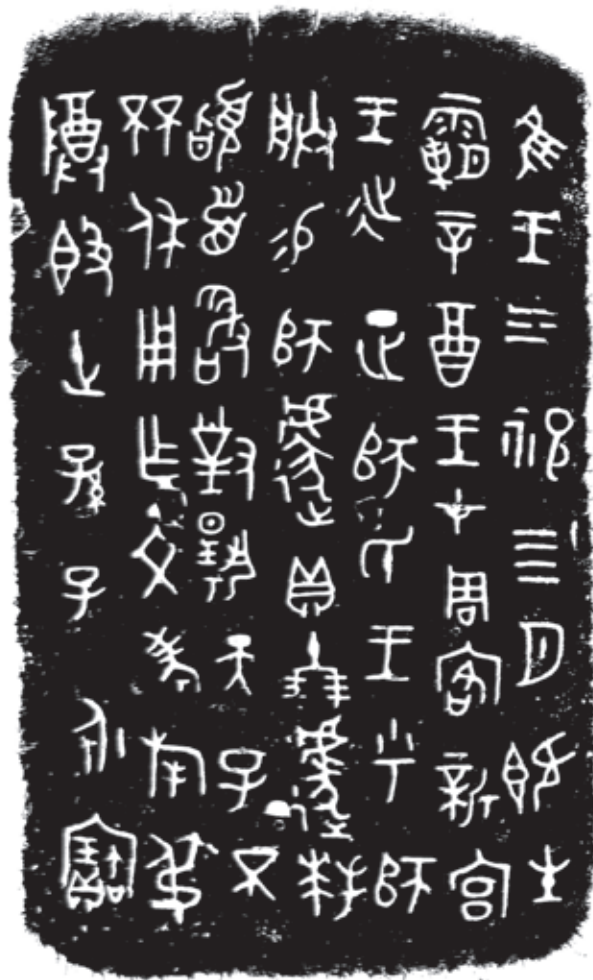 隹王三祀亖月既生
霸辛酉王才周客新宮
王𢓊正師氏王乎師
朕易師遽貝十朋遽拜
𩒨首敢對揚天子不
㔻休用乍文考旄弔
𬯚𣪘世孫子永寶